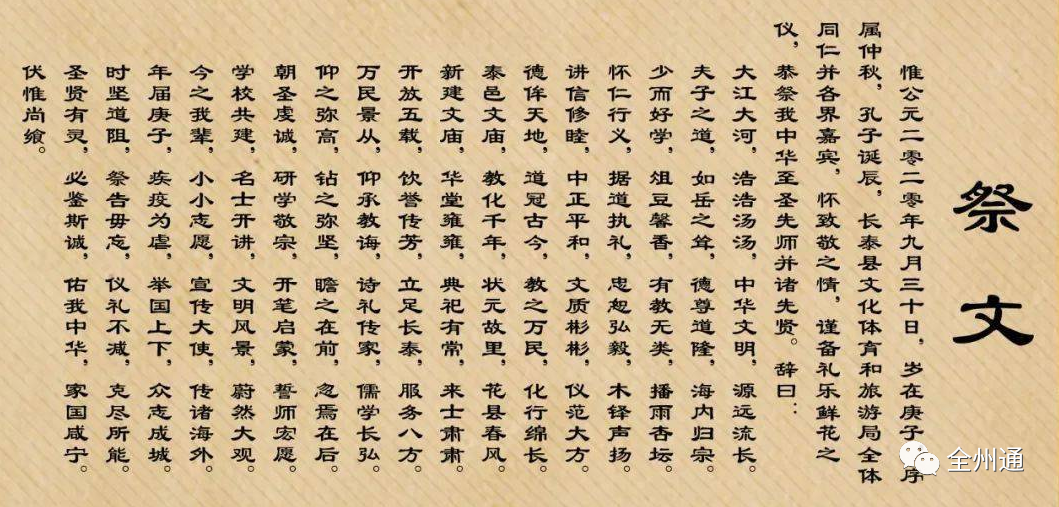 祭文
惟公元二零二零年九月三十日，岁在庚子，序
属仲秋，孔子诞辰，长泰县文化体育和旅游局全体
同仁并各界嘉宾，怀致敬之情，谨备礼乐鲜花之
仪，恭祭我中华至圣先师并诸先贤。辞曰：
大江大河，浩浩汤汤，中华文明，源远流长。
夫子之道，如岳之耸，德尊道隆，海内归宗。
少而好学，俎豆馨香，有教无类，播雨杏坛。
怀仁行义，据道执礼，忠恕弘毅，木铎声扬。
讲信修睦，中正平和，文质彬彬，仪范大方。
德侔天地，道冠古今，教之万民，化行绵长。
泰邑文庙，教化千年，状元故里，花县春风。
新建文庙，华堂雍雍，典祀有常，来士肃肃。
开放五载，饮誉传芳，立足长泰，服务八方。
万民景从，仰承教诲，诗礼传家，儒学长弘。
仰之弥高，钻之弥坚，瞻之在前，忽焉在后。
朝圣虔诚，研学敬宗，开笔启蒙，誓师宏愿。
学校共建，名士开讲，文明风景，蔚然大观。
今之我辈，小小志愿，宣传大使，传诸海外。
年届庚子，疾疫为虐，举国上下，众志成城。
时坚道阻，祭告毋忘，仪礼不减，克尽所能。
圣贤有灵，必鉴斯诚，佑我中华，家国咸宁。
伏惟尚飨。
全州通